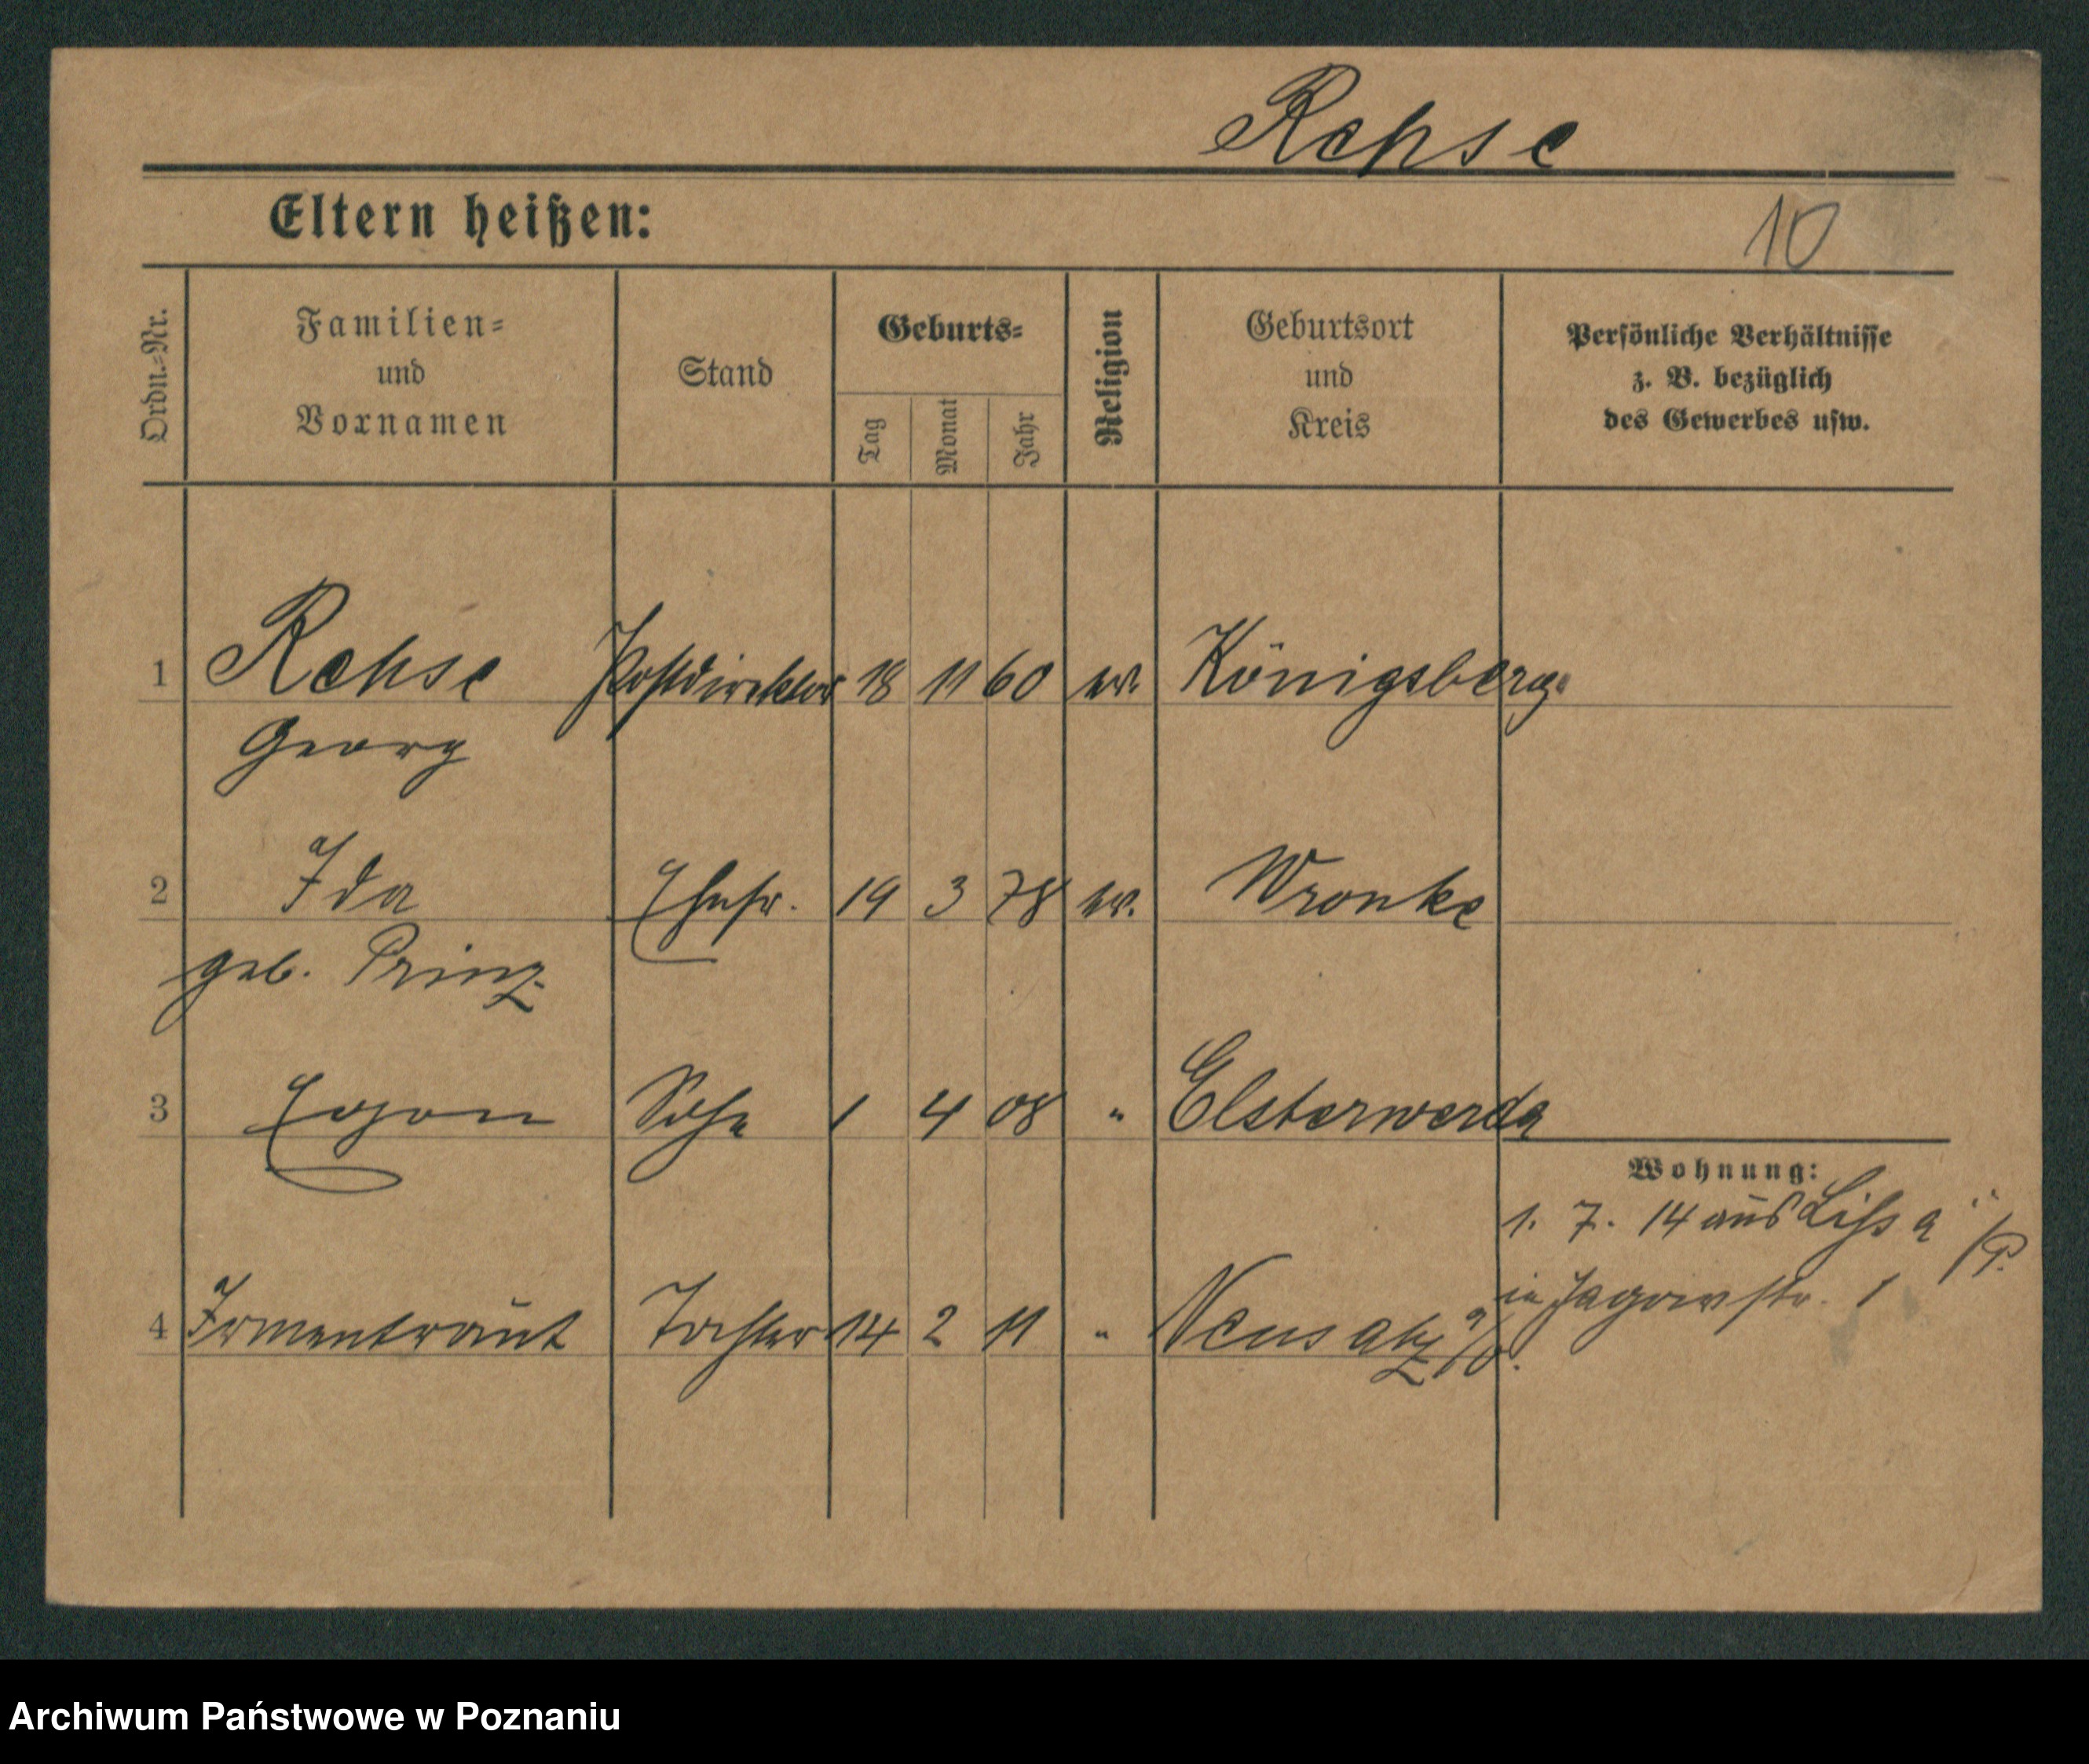 Rehse
Eltern heißen:
10
Ordn.-Nr.
Familien-
und
Vornamen
Stand
Geburts-
Tag
Monat
Jahr
Religion
Geburtsort
und
Kreis
Persönliche Verhältnisse
z. B. bezüglich
des Gewerbes usw.
1 Rehse Postdirektor 18 11 60 ev. Königsberg
Georg
2 Ida Ehefr. 19 3 78 ev. Wronke
geb. Prinz
3 Egon Sohn 1 4 08 " Elsterwerda
Wohnung:
1. 7. 14 aus Lissa i/P.
in Jagowstr. 1
4 Irmentraut Tochter 14 2 11 " Neusalz a/O.
Archiwum Państwowe w Poznaniu